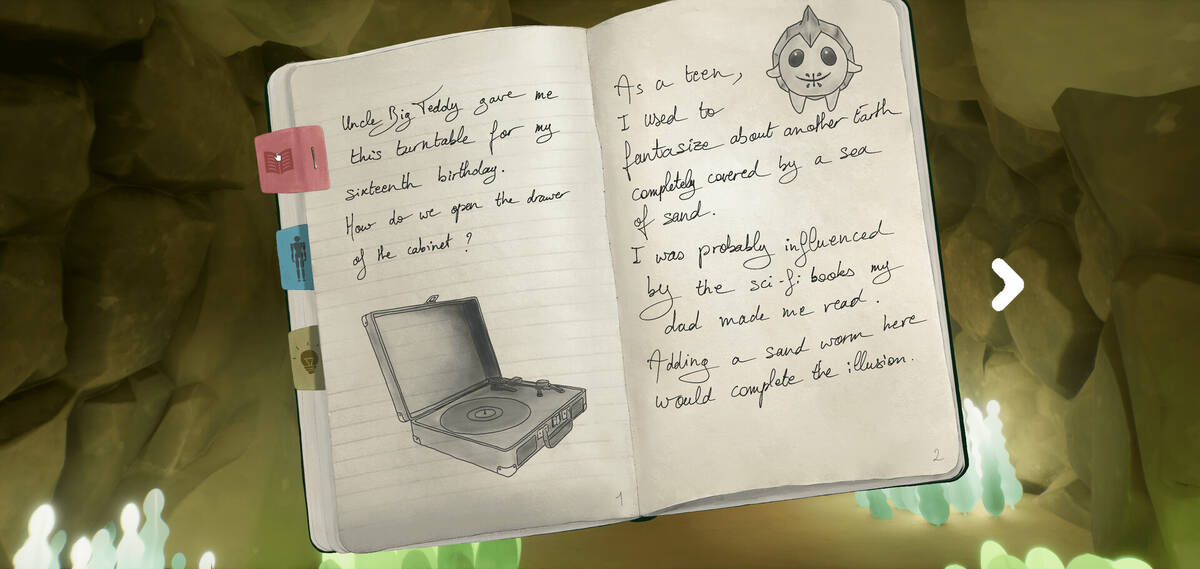 Uncle Big Teddy gave me
this turntable for my
sixteenth birthday.
How do we open the drawer
of the cabinet ?
1
As a teen,
I used to
fantasize about another Earth
completely covered by a sea
of sand.
I was probably influenced
by the sci-fi books my
dad made me read.
Adding a sand worm here
would complete the illusion.
2